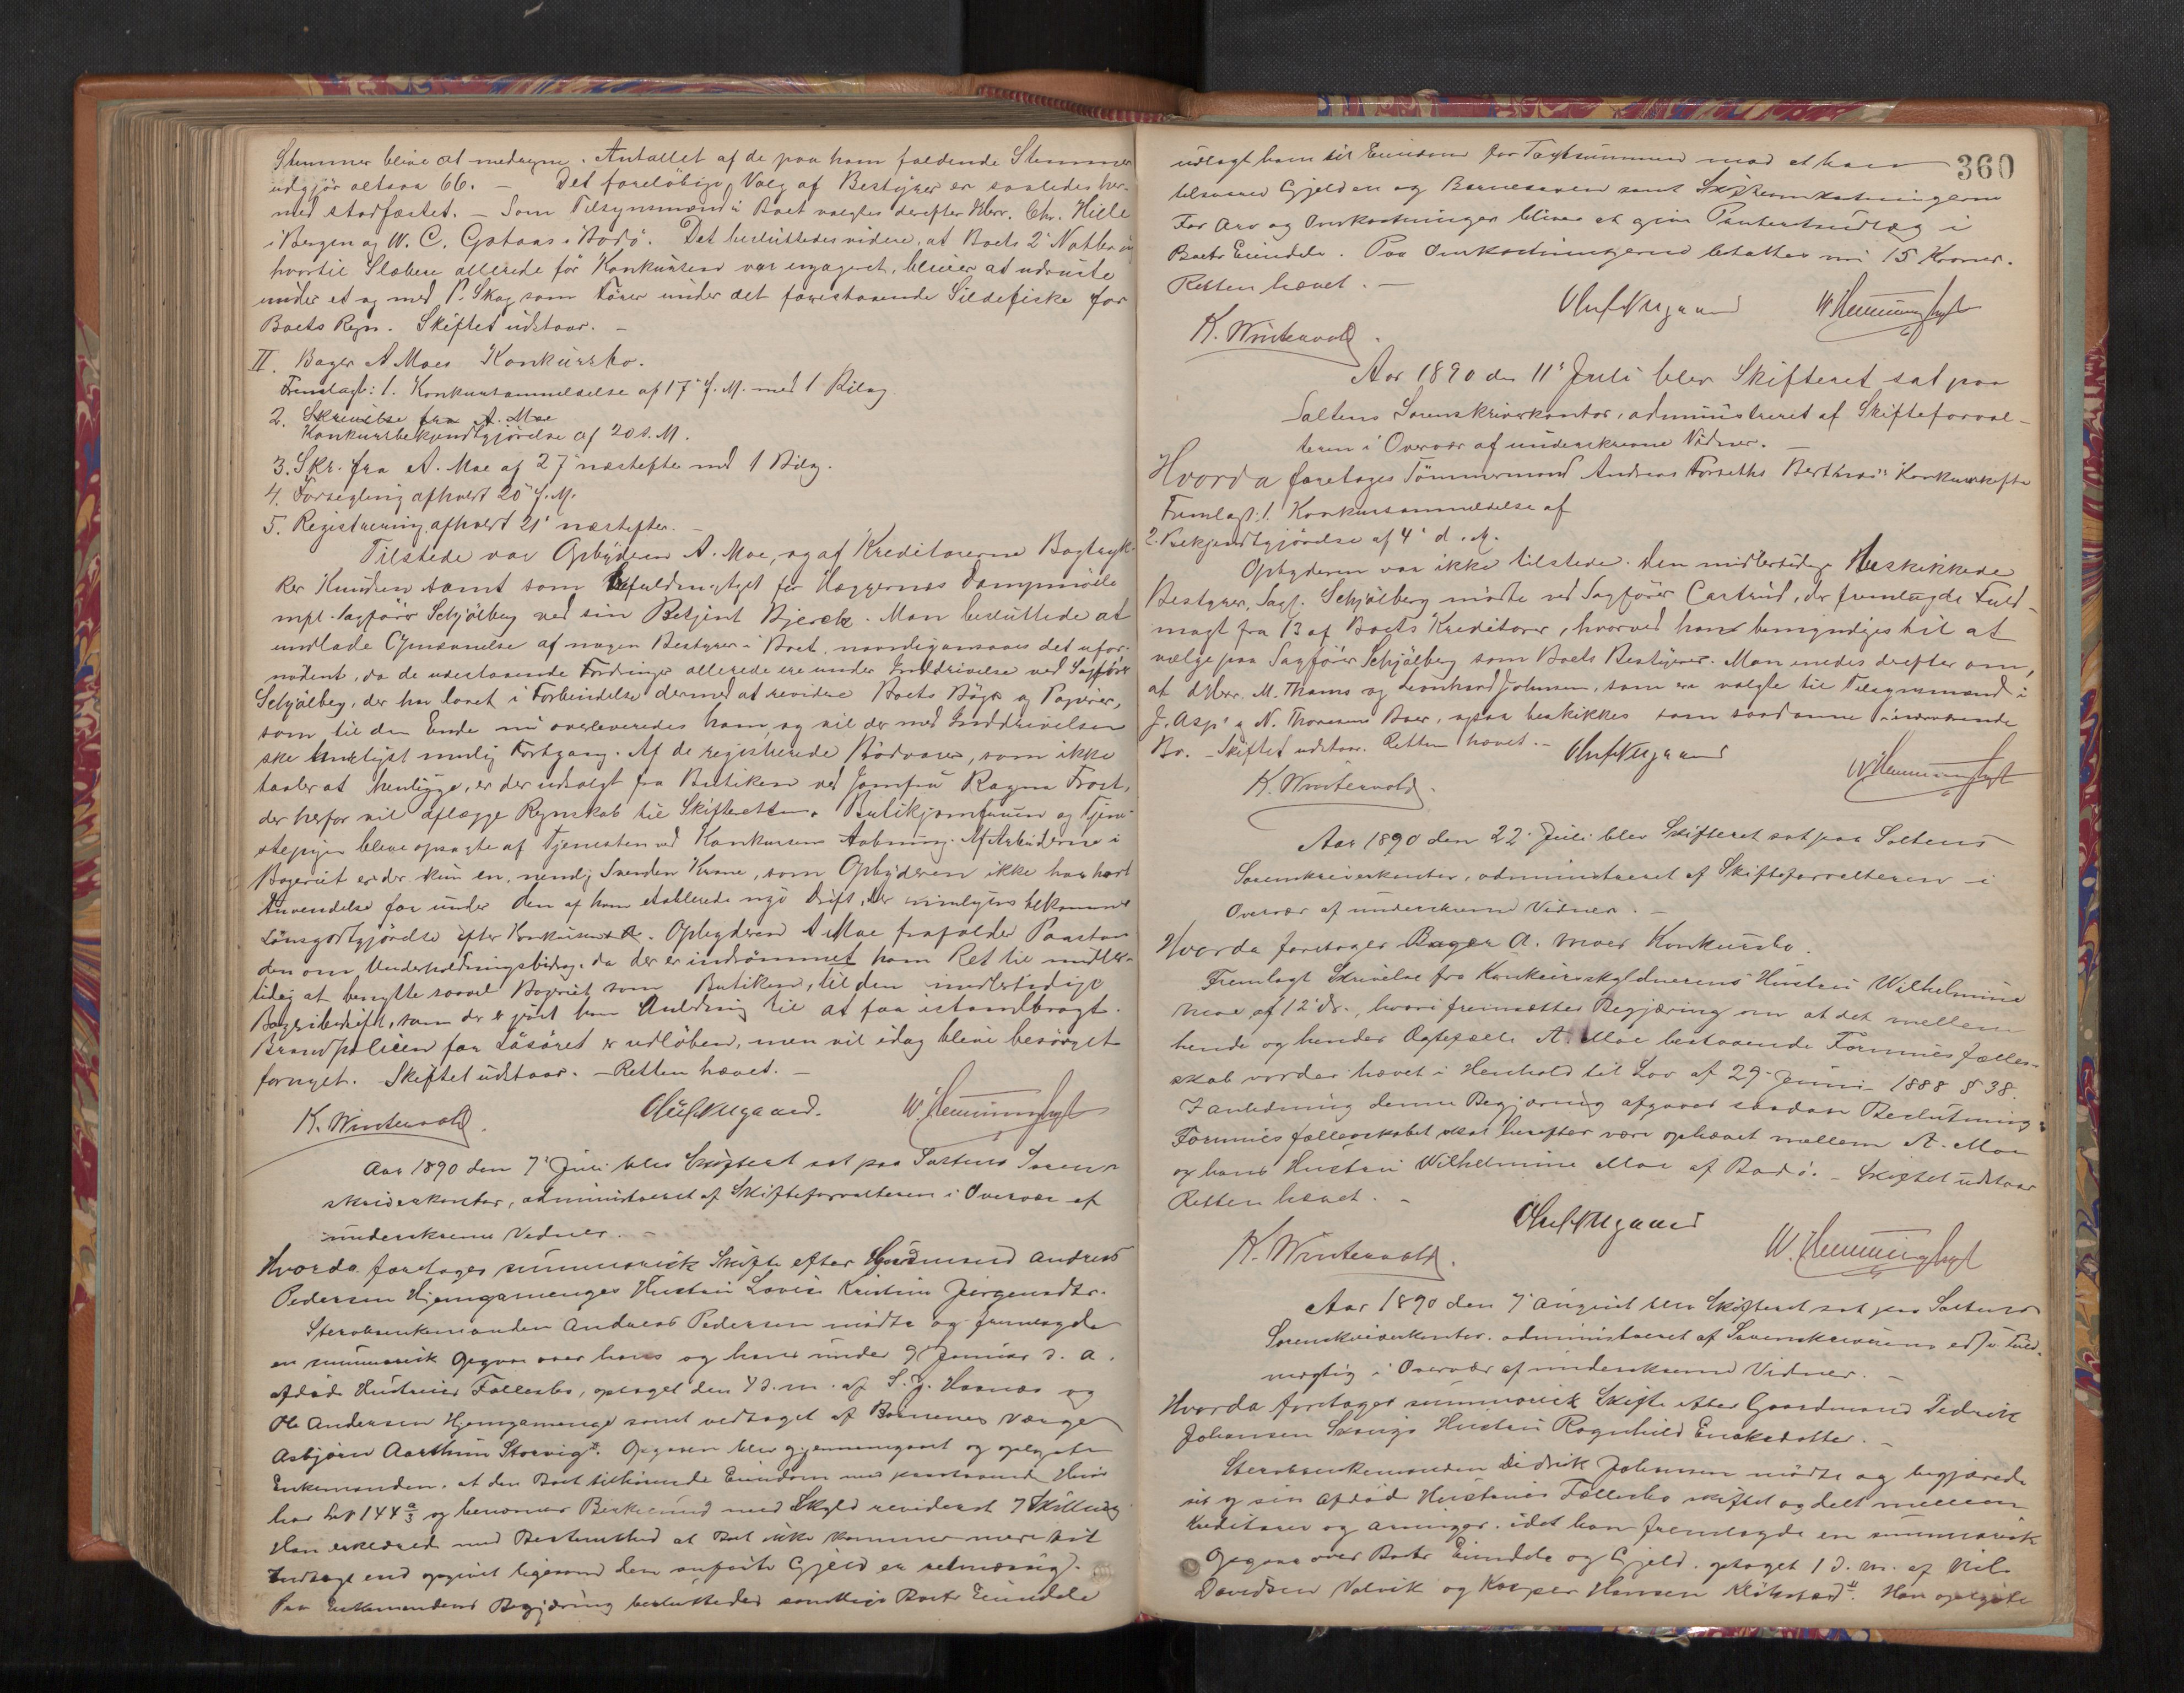 Stemmer blive at medregne. Antallet af de paa ham faldende Stemmer
udgjør altsaa 66. — Det foreløbige Valg af Bestyrer er saaledes her-
med stadfæstet. — Som Tilsynsmænd i Boet valgtes derefter Hhrr. Chr. Hille
i Bergen og W. C. Gotaas i Bodø. Det besluttedes videre, at Boets 2 Notbrug
hvortil Slæbere allerede før Konkursen var engageret, bliver at udruste
under et og med P. Skog som Fører under det forestaaende Sildefiske for
Boets Regn. Skiftet udstaar. —
II. Bager A Moes Konkursbo.
Fremlagt: 1. Konkursanmeldelse af 17 f. M. med 1 Bilag
2. Skrivelse fra A. Moe
Konkursbekjendtgjørelse af 20 s. M.
3. Skr. fra A. Moe af 27 næstefter med 1 Bilag.
4. Forsegling afholdt 20 f. M.
5. Registrering afholdt 21 næstefter. —
Tilstede var Opbyderen A. Moe, og af Kreditorerne Bogtryk-
ker Knudsen samt som Befuldmægtiget for Vaggernes Dampmølle
mpl. Sagfører Schjølberg ved sin Betjent Bjerck. Man besluttede at
undlade Opnævnelse af nogen Bestyrer i Boet, navnlig ansaaes det ufor-
nødent, da de udestaaende Fordringer allerede ere under Inddrivelse ved Sagfører
Schjølberg, der har lovet i Forbindelse dermed at revidere Boets Bøger og Papirer,
som til den Ende nu overleveredes ham, og vil der med Inddrivelsen
ske hurtigst mulig Fortgang. Af de registrerede Brødvarer, som ikke
taaler at henligge, er der udsolgt fra Butiken ved Jomfru Ragna Frost,
der herfor vil aflægge Regnskab til Skifteretten. Butikjomfruen og Tjene-
stepigen bleve opsagte af Tjenesten ved Konkursens Aabning. Af Arbeiderne i
Bageriet er der kun en, nemlig Svenden Krane, som Opbyderen ikke har havt
Anvendelse for under den af ham etablerede nye Drift, der rimeligvis bekommer
Lønsgodtgjørelse efter Konkursen. Opbyderen A Moe frafalder Paastan-
den om Underholdningsbidrag, da der er indrømmet ham Ret til midler-
tidig at benytte saavel Bageriet som Butiken, til den midlertidige
Bageribedrift, som der er givet ham Anledning til at faa istandbragt.
Brandpolicen for Løsøret er udløben, men vil idag blive besørget
fornyet. Skiftet udstaar. — Retten hævet. —
K. Wintervold. W Hemminghyt
Aar 1890 den 7 Juli blev Skifteret sat paa Saltens Soren-
skriverkontor, administreret af Skifteforvalteren i Overvær af
underskrevne Vidner. —
Hvorda foretoges summarisk Skifte efter Gaardmand Andreas
Pedersen Hjemgamenges Hustru Lovise Kristine Jørgensdtr.
Sterbsenkemanden Andreas Pedersen mødte og fremlagde
en summarisk Opgave over hans og hans under 9 Januar d. A.
afdøde Hustrues Fællesbo, optaget den 4 d. M. af
Ole Andersen Hjemgamenge samt vedtaget af Børnenes Værge
Asbjørn Aarthun Storvig. Opgaven blev gjennemgaaet og oplyste
Enkemanden, at den Boet tilhørende Eiendom med paastaaende Huse
har Lnr 144 a/3 og benævnes Birkelund med Skyld revideret 7 Skilling
Han erklærede med Bestemthed at Boet ikke kommer mere til
Indtægt end opgivet ligesom den anførte Gjeld er retmæssig.
Paa Enkemandens Begjæring besluttedes samtlige Boets Eiendele
360
udlagt ham til Eiendom for Taxtsummen mod at han
tilsvarer Gjelden og Børnearven samt Skifteomkostningerne
For Arv og Omkostninger bliver at give Panteretsudlæg i
Boets Eiendele. Paa Omkostningerne betaltes nu 15 Kroner.
Retten hævet. —
K. Wintervold. W Hemminghyt
Aar 1890 den 11 Juli blev Skifteret sat paa
Saltens Sorenskriverkontor, administreret af Skifteforval-
teren i Overvær af underskrevne Vidner. —
Hvorda foretoges Tømmermand Andreas Forseths Konkursskifte
Fremlagt: 1. Konkursanmeldelse af
2. Bekjendtgjørelse af 4 d. M.
Opbyderen var ikke tilstede. Den midlertidige beskikkede
Bestyrer, Sagf. Schjølberg mødte ved Sagfører Castrud, der fremlagde Fuld-
magt fra 13 af Boets Kreditorer, hvorved han bemyndiges til at
vælge paa Sagfører Schjølberg som Boets Bestyrer. Man enedes derefter om,
at Hhrr. M. Thams og Leonhard Johnsen, som ere valgte til Tilsynsmænd i
J. Asp's og N. Thoresens Boer, ogsaa beskikkes som saadanne i nærværende
Bo. — Skiftet udstaar. Retten hævet. —
K. Wintervold. W Hemminghyt
Aar 1890 den 22 Juli blev Skifteret sat paa Saltens
Sorenskriverkontor, administreret af Skifteforvalteren i
Overvær af underskrevne Vidner. —
Hvorda foretoges Bager A. Moes Konkursbo.
Fremlagt Skrivelse fra Konkursskyldnerens Hustru Wilhelmine
Moe af 12 ds., hvori fremsættes Begjæring om at det mellem
hende og hendes Ægtefælle A. Moe bestaaende Formuesfælles-
skab vorder hævet i Henhold til Lov af 29 Juni 1888 § 38.
I Anledning denne Begjæring afgaves saadan Beslutning:
Formuesfællesskabet skal herefter være ophævet mellem A. Moe
og hans Hustru Wilhelmine Moe af Bodø. — Skiftet udstaar
Retten hævet. —
K. Wintervold. W. Hemminghyt
Aar 1890 den 7 August blev Skifteret sat paa Saltens
Sorenskriverkontor, administreret af Sorenskriverens eds. Fuld-
mægtig i Overvær af underskrevne Vidner. —
Hvorda foretoges summarisk Skifte efter Gaardmand Didrik
Johansen Skaugs Hustru Ragnhild Enoksdatter. —
Sterbsenkemanden Didrik Johansen mødte og begjærede
sit og sin afdøde Hustrues Fællesbo skiftet og delt mellem
Kreditorer og Arvinger, idet han fremlagde en summarisk
Opgave over Boets Eiendele og Gjeld, optaget 1 d. M. af Nils
Davidsen Valvik og Kasper Hansen Klikstad. Han oplyste